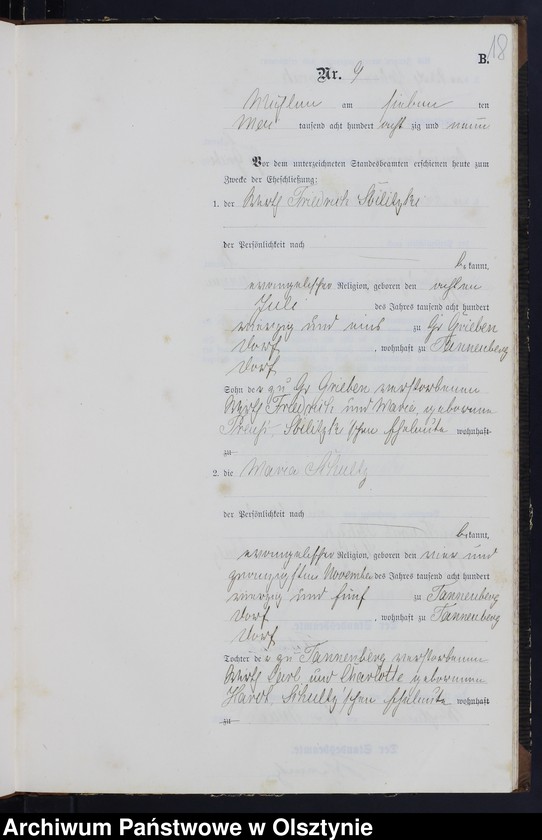 18
B.
Nr. 9
Mühlen am sieben ten
Mai tausend acht hundert acht zig und neun
Vor dem unterzeichneten Standesbeamten erschienen heute zum
Zwecke der Eheschließung:
1. der Wirth Friedrich
der Persönlichkeit nach
bekannt,
evangelischer Religion, geboren den achten
Juli des Jahres tausend acht hundert
vierzig und eins zu Gr Grieben
Dorf, wohnhaft zu Tannenberg
Dorf
Sohn der zu Gr Grieben verstorbenen
Wirth Friedrich und Maria geborene
schen Eheleute wohnhaft
zu
2. die Maria Schultz
der Persönlichkeit nach
bekannt,
evangelischer Religion, geboren den vier und
zwanzigsten November des Jahres tausend acht hundert
vierzig und fünf zu Tannenberg
Dorf, wohnhaft zu Tannenberg
Dorf
Tochter der zu Tannenberg verstorbenen
Wirth Carl und Charlotte geborenen
Hardt Schultz'schen Eheleute wohnhaft
zu
Archiwum Państwowe w Olsztynie